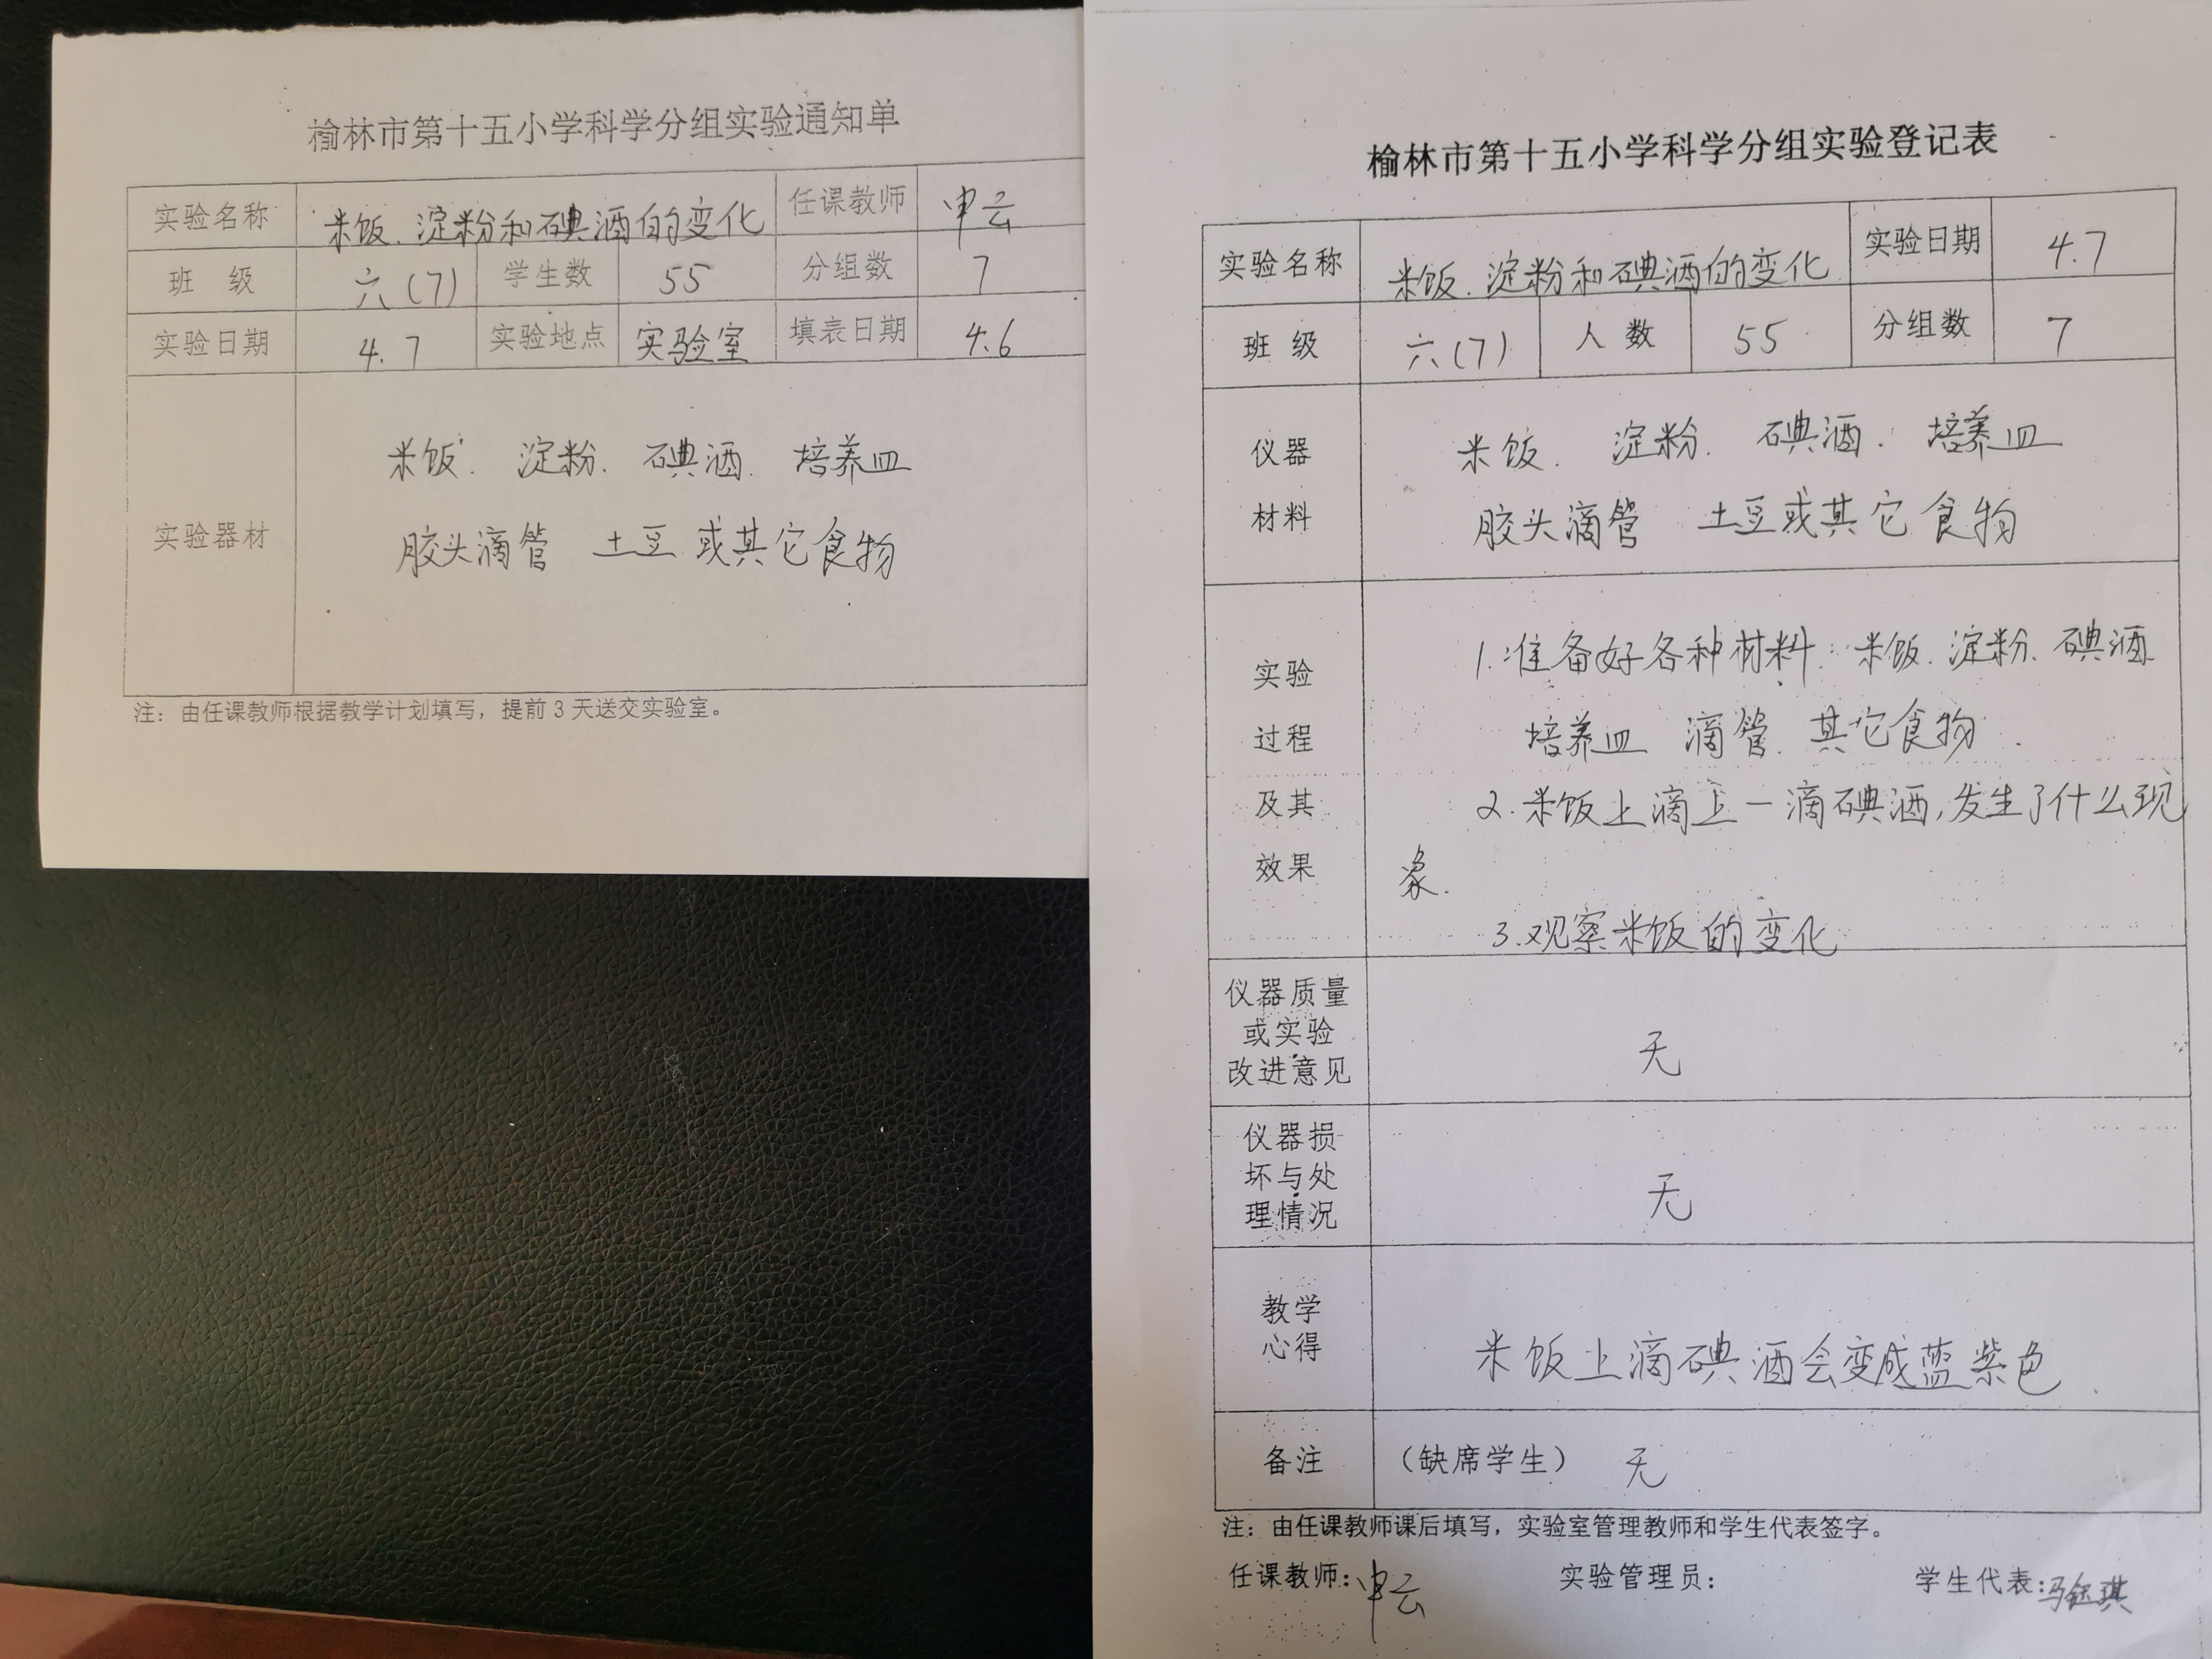 榆林市第十五小学科学分组实验通知单
实验名称 米饭、淀粉和碘酒的变化 任课教师 申云
班 级 六(7) 学生数 55 分组数 7
实验日期 4.7 实验地点 实验室 填表日期 4.6
米饭、 淀粉、 碘酒、 培养皿
实验器材
胶头滴管 土豆或其它食物
注：由任课教师根据教学计划填写，提前3天送交实验室。
榆林市第十五小学科学分组实验登记表
实验名称 米饭、淀粉和碘酒的变化 实验日期 4.7
班 级 六(7) 人 数 55 分组数 7
仪器 米饭、 淀粉、 碘酒、 培养皿
材料 胶头滴管 土豆或其它食物
实验 1.准备好各种材料：米饭、淀粉、碘酒
过程 培养皿 滴管、其它食物.
及其 2.米饭上滴上一滴碘酒,发生了什么现
效果 象.
3.观察米饭的变化
仪器质量
或实验 无
改进意见
仪器损
坏与处 无
理情况
教学
心得 米饭上滴碘酒会变成蓝紫色.
备注 （缺席学生） 无
注：由任课教师课后填写，实验室管理教师和学生代表签字。
任课教师：申云 实验管理员： 学生代表：马钰琪